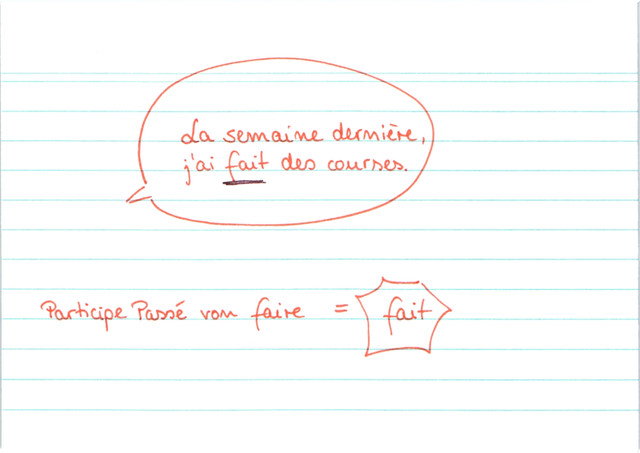 La semaine dernière,
j'ai fait des courses.
Participe Passé vom faire = fait